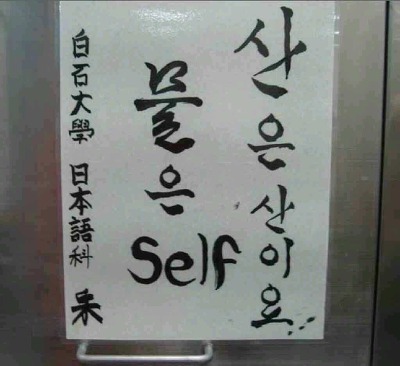 산은산이요
물은 Self
白石大學 日本語科